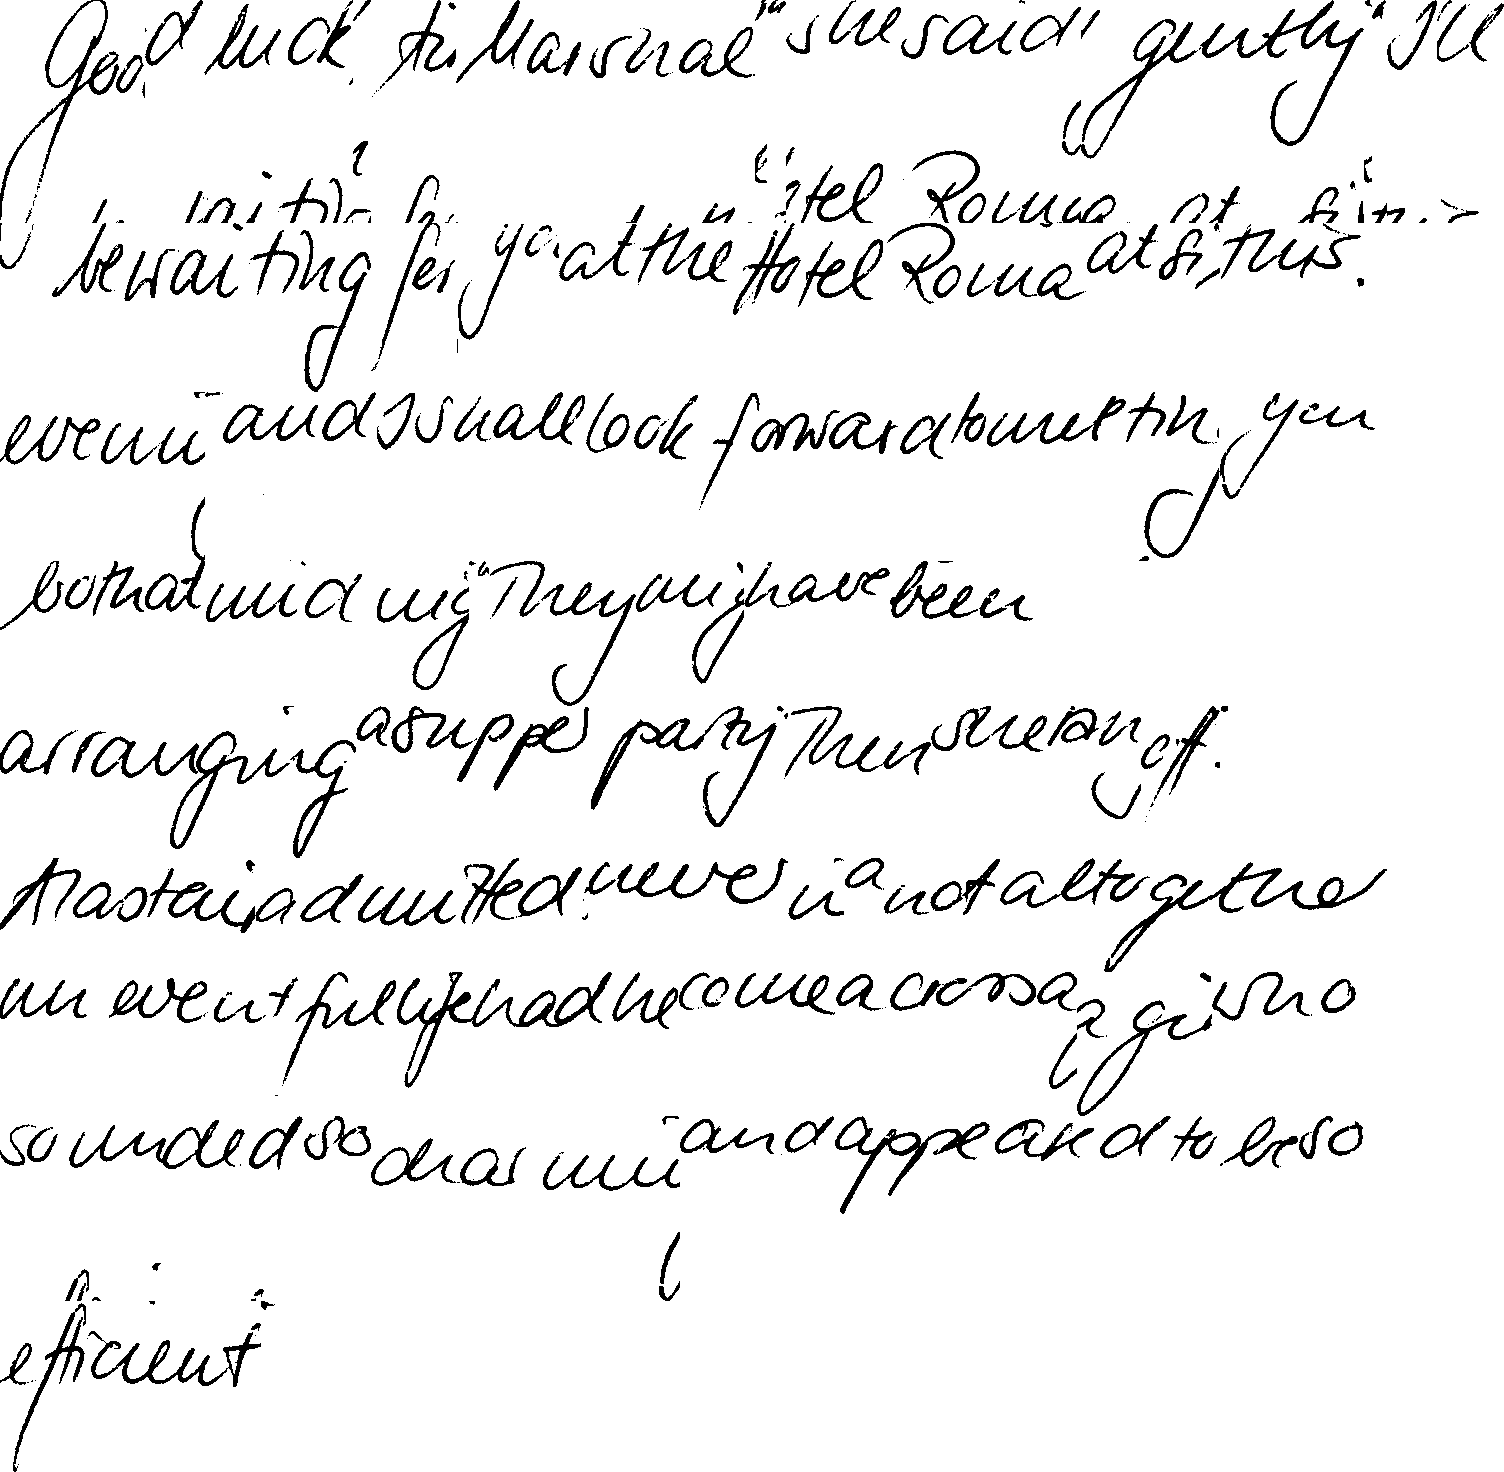 Good luck, Air Marshal" she said gently "I'll
be waiting for you at the Hotel Roma at six this
evening and I shall look forward to meeting you
both at midnight" They might have been
arranging a supper party Then she rang off.
Alastair admitted never in a not altogether
uneventful life had he come across a girl who
sounded so charming and appeared to be so
efficient